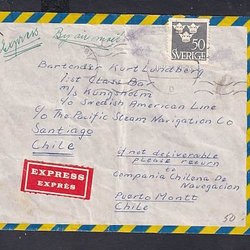 Express By air mail
50
SVERIGE
Bartender Kurt Lundberg
1:st Class Bar
m/s Kungsholm
c/o Swedish American Line
c/o The Pacific Steam Navigation Co
Santiago
Chile
if not deliverable
please return
to
Compania Chilena De
Navegacion
Puerto Montt
Chile
EXPRESS
EXPRÈS
50